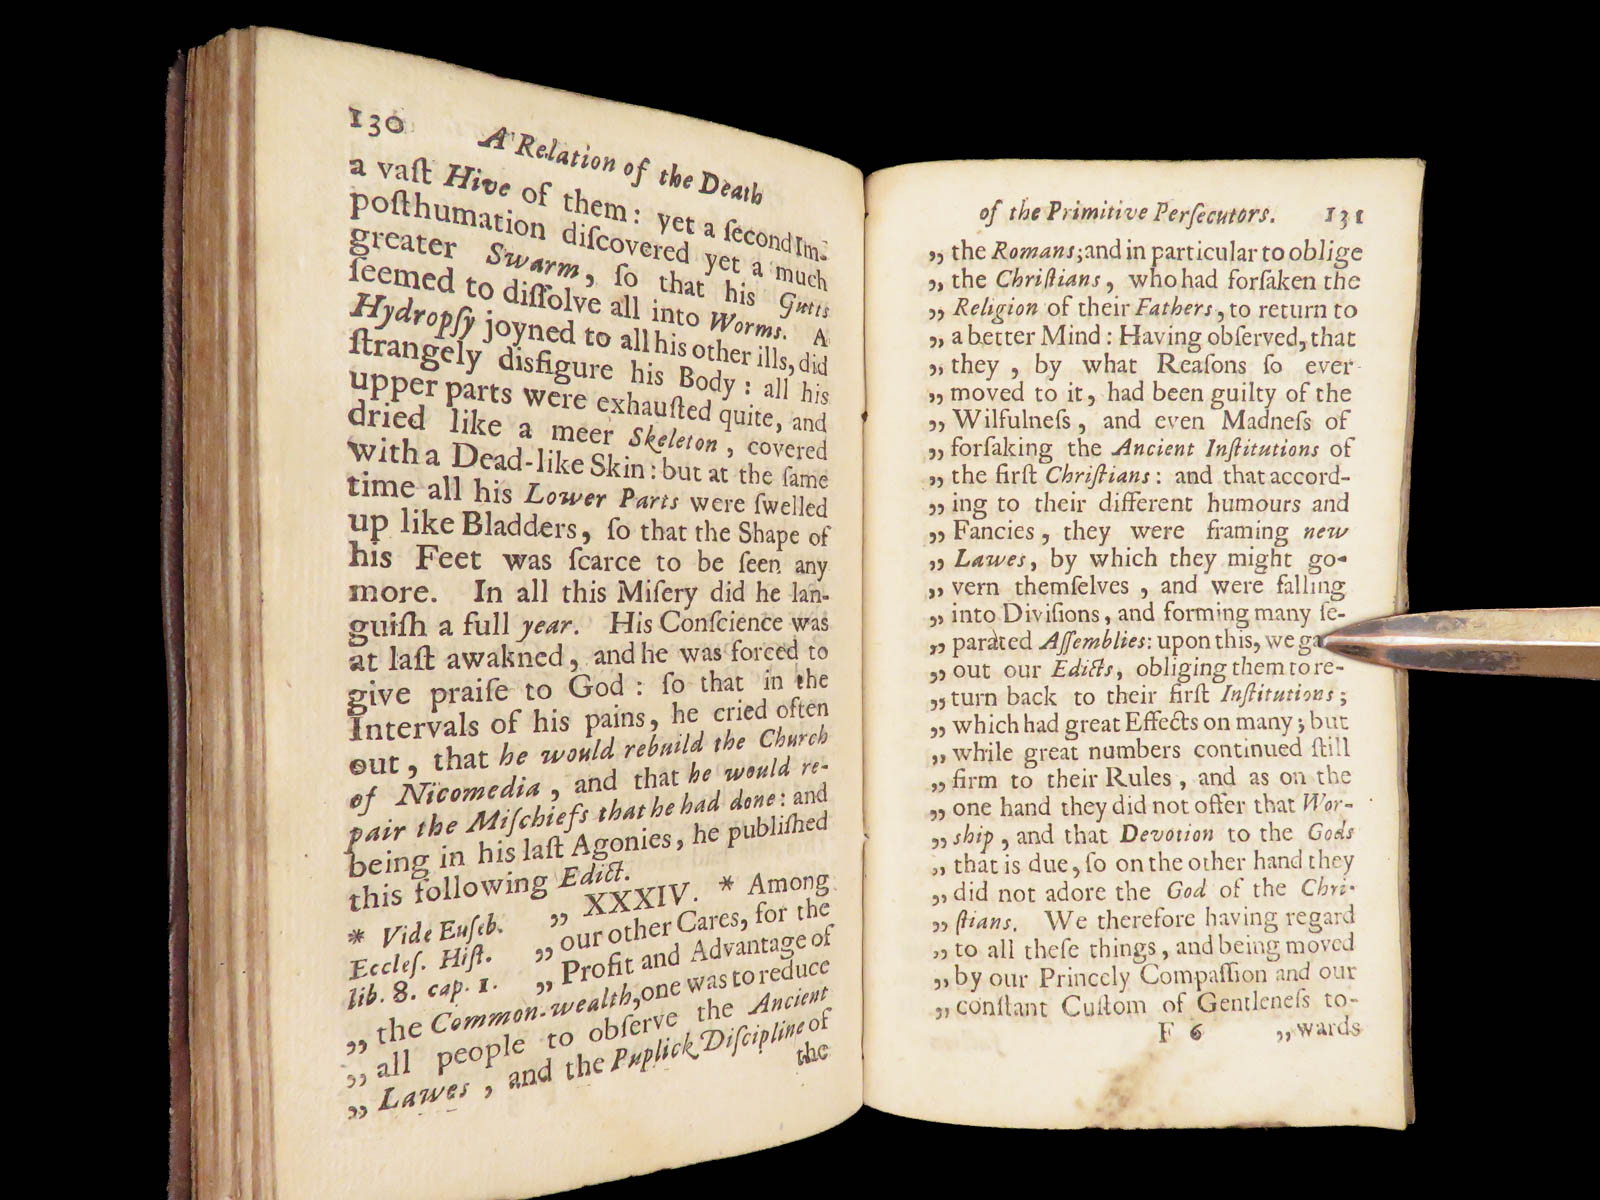 130
A Relation of the Death
a vaſt Hive of them: yet a ſecond Im-
poſthumation diſcovered yet a much
greater Swarm, ſo that his Gutts
ſeemed to diſſolve all into Worms. A
Hydropſy joyned to all his other ills, did
ſtrangely disfigure his Body: all his
upper parts were exhauſted quite, and
dried like a meer Skeleton, covered
with a Dead-like Skin: but at the ſame
time all his Lower Parts were ſwelled
up like Bladders, ſo that the Shape of
his Feet was ſcarce to be ſeen any
more. In all this Miſery did he lan-
guiſh a full year. His Conſcience was
at laſt awakned, and he was forced to
give praiſe to God: ſo that in the
Intervals of his pains, he cried often
out, that he would rebuild the Church
of Nicomedia, and that he would re-
pair the Miſchiefs that he had done: and
being in his laſt Agonies, he publiſhed
this following Edict.
„ XXXIV. * Among
* Vide Euſeb. „ our other Cares, for the
Eccleſ. Hiſt. „ Profit and Advantage of
lib. 8. cap. 1. „ the Common-wealth, one was to reduce
„ all people to obſerve the Ancient
„ Lawes, and the Puplick Diſcipline of
the
of the Primitive Perſecutors. 131
„ the Romans; and in particular to oblige
„ the Chriſtians, who had forſaken the
„ Religion of their Fathers, to return to
„ a better Mind: Having obſerved, that
„ they, by what Reaſons ſo ever
„ moved to it, had been guilty of the
„ Wilfulneſs, and even Madneſs of
„ forſaking the Ancient Inſtitutions of
„ the firſt Chriſtians: and that accord-
„ ing to their different humours and
„ Fancies, they were framing new
„ Lawes, by which they might go-
„ vern themſelves, and were falling
„ into Diviſions, and forming many ſe-
„ parated Aſſemblies: upon this, we ga
„ out our Edicts, obliging them to re-
„ turn back to their firſt Inſtitutions;
„ which had great Effects on many; but
„ while great numbers continued ſtill
„ firm to their Rules, and as on the
„ one hand they did not offer that Wor-
„ ſhip, and that Devotion to the Gods
„ that is due, ſo on the other hand they
„ did not adore the God of the Chri-
„ ſtians. We therefore having regard
„ to all theſe things, and being moved
„ by our Princely Compaſſion and our
„ conſtant Cuſtom of Gentleneſs to-
F 6 „ wards